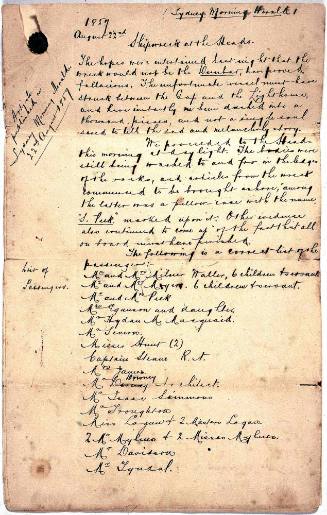 (Sydney Morning Herald)
1857
August 22nd
Shipwreck at the Heads.
The hopes we entertained last night that the
wreck would not be the Dunbar, have proved
fallacious. The unfortunate vessel must have
struck between the Gap and the Lighthouse,
and have instantly been dashed into a
thousand pieces, and not a single soul
saved to tell the sad and melancholy story.
We proceeded to the Heads
this morning at daylight. The bodies were
still being washed to and fro on the ledges
of the rocks, and articles from the wreck
commenced to be brought ashore, among
the latter was a pillow case with the name
"S. Peek" marked upon it. Other evidence
also continued to come up of the fact that all
on board must have perished.
The following is a correct list of the
passengers:
List of
Passengers.
Mr and Mrs Kilner Waller, 6 children & servant
Mr and Mrs Meyer. 6 children & servant.
Mr and Mrs Peek
Mrs Egan son and daughter
Mr Severn
Misses Hunt (2)
Captain Steane R.N.
Mr James
Mr Downey
Architect.
Mr Isaac Simmons
Mr Troughton
2 Mr Mylnes & 2 Misses Mylnes.
Mr Davidson
Sydney Morning Herald
22nd August 1857